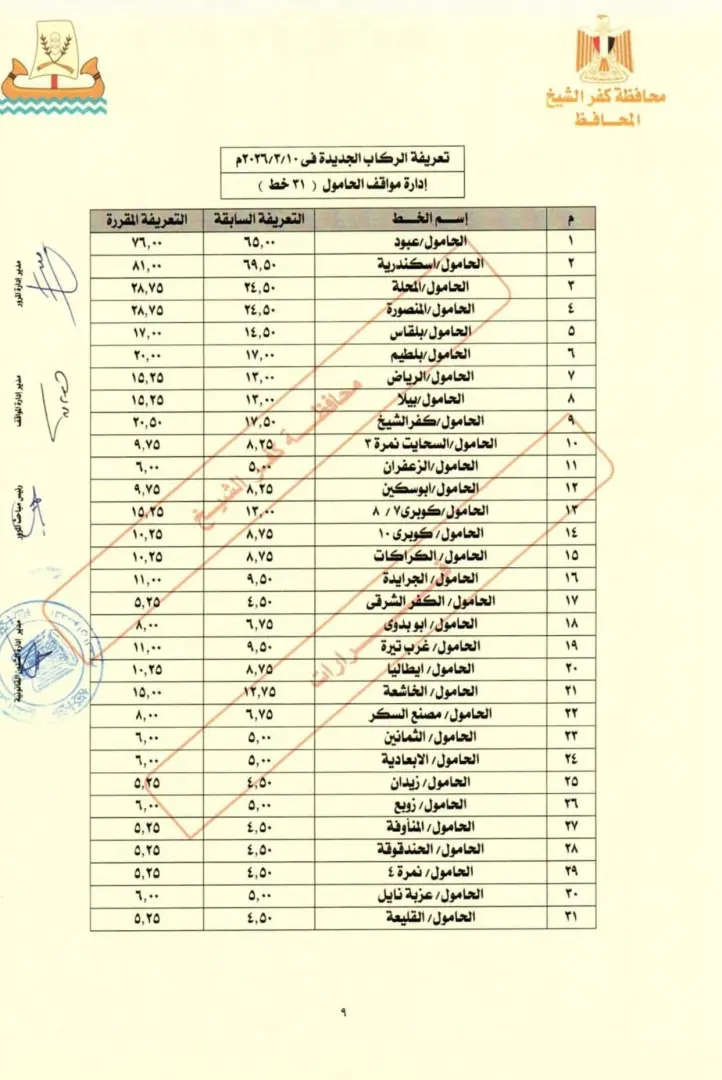 محافظة كفر الشيخ
المحافظ
تعريفة الركاب الجديدة فى ٢٠٢٦/٣/١٠م
إدارة مواقف الحامول ( ٣١ خط )
م إسم الخط التعريفة السابقة التعريفة المقررة
١ الحامول/عبود ٦٥,٠٠ ٧٦,٠٠
٢ الحامول/اسكندرية ٦٩,٥٠ ٨١,٠٠
٣ الحامول/المحلة ٢٤,٥٠ ٢٨,٧٥
٤ الحامول/المنصورة ٢٤,٥٠ ٢٨,٧٥
٥ الحامول/بلقاس ١٤,٥٠ ١٧,٠٠
٦ الحامول/بلطيم ١٧,٠٠ ٢٠,٠٠
٧ الحامول/الرياض ١٣,٠٠ ١٥,٢٥
٨ الحامول/بيلا ١٣,٠٠ ١٥,٢٥
٩ الحامول/كفرالشيخ ١٧,٥٠ ٢٠,٥٠
١٠ الحامول/السحايت نمرة ٣ ٨,٢٥ ٩,٧٥
١١ الحامول/الزعفران ٥,٠٠ ٦,٠٠
١٢ الحامول/ابوسكين ٨,٢٥ ٩,٧٥
١٣ الحامول/كوبرى٧ / ٨ ١٣,٠٠ ١٥,٢٥
١٤ الحامول/ كوبرى ١٠ ٨,٧٥ ١٠,٢٥
١٥ الحامول/ الكراكات ٨,٧٥ ١٠,٢٥
١٦ الحامول/ الجرايدة ٩,٥٠ ١١,٠٠
١٧ الحامول/ الكفر الشرقى ٤,٥٠ ٥,٢٥
١٨ الحامول/ ابو بدوى ٦,٧٥ ٨,٠٠
١٩ الحامول/ غرب تيرة ٩,٥٠ ١١,٠٠
٢٠ الحامول/ ايطاليا ٨,٧٥ ١٠,٢٥
٢١ الحامول/ الخاشعة ١٢,٧٥ ١٥,٠٠
٢٢ الحامول/ مصنع السكر ٦,٧٥ ٨,٠٠
٢٣ الحامول/ الثمانين ٥,٠٠ ٦,٠٠
٢٤ الحامول/ الابعادية ٥,٠٠ ٦,٠٠
٢٥ الحامول/ زيدان ٤,٥٠ ٥,٢٥
٢٦ الحامول/ زوبع ٥,٠٠ ٦,٠٠
٢٧ الحامول/ المنأوفة ٤,٥٠ ٥,٢٥
٢٨ الحامول/ الحندقوقة ٤,٥٠ ٥,٢٥
٢٩ الحامول/ نمرة ٤ ٤,٥٠ ٥,٢٥
٣٠ الحامول/ عزبة نايل ٥,٠٠ ٦,٠٠
٣١ الحامول/ القليعة ٤,٥٠ ٥,٢٥
مدير إدارة المرور
مدير إدارة المواقف
رئيس مباحث المرور
مدير إدارة الشئون القانونية
محافظة كفر الشيخ
٩